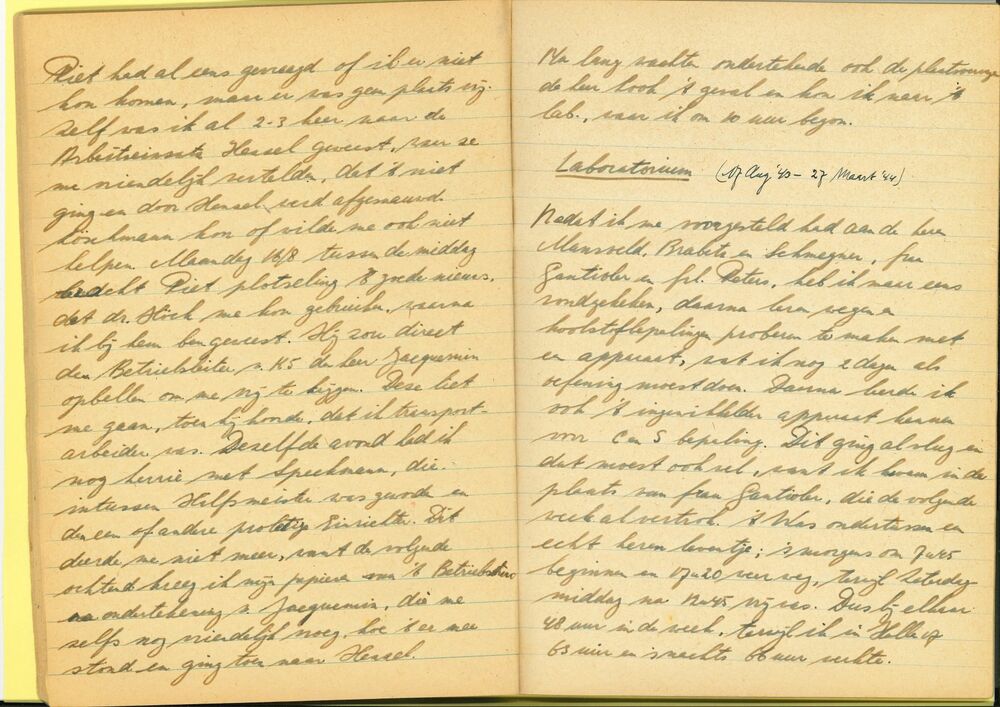 Piet had al eens gevraagd of ik er niet
kon komen, maar er was geen plaats vrij.
Zelf was ik al 2-3 keer naar de
Arbeitseinsatz Hessel geweest, waar ze
me vriendelijk vertelden, dat 't niet
ging en door Hensel werd afgesnauwd.
Löschmann kon of wilde me ook niet
helpen. Maandag 16/8 tussen de middag
bracht Piet plotseling 't goede nieuws,
dat dr. Höck me kon gebruiken, waarna
ik bij hem ben geweest. Hij zou direct
den Betriebsleiter v. K5 den heer Jacquemin
opbellen om me vrij te krijgen. Deze liet
me gaan, toen hij hoorde, dat ik transport-
arbeider was. Dezelfde avond had ik
nog herrie met Speckmann, die
intussen Hilfsmeister was geworden en
den een of andere Einrichter. Dit
deerde me niet meer, want de volgende
ochtend kreeg ik mijn papieren van 't Betriebsbüro
na ondertekening v. Jacquemin, die me
zelfs nog vriendelijk vroeg, hoe 't er mee
stond en ging toen naar Hessel.
Na lang wachten ondertekende ook de plaatsvervanger
de heer Cook 't geval en kon ik naar 't
lab., waar ik om 10 uur begon.
Laboratorium (17 Aug '43 – 27 Maart '44)
Nadat ik me voorgesteld had aan de heren
Mansveld, Brabite en Schmegner, frau
Gantioler en frl. Peters, heb ik maar eens
rondgekeken, daarna leren wegen en
koolstofbepalingen proberen te maken met
een apparaat, wat ik nog 2 dagen als
oefening moest doen. Daarna leerde ik
ook 't ingewikkelder apparaat kennen
voor C en S bepaling. Dit ging al vlug en
dat moest ook wel, want ik kwam in de
plaats van frau Gantioler, die de volgende
week al vertrok. 't Was ondertussen een
echt heren leventje; 's morgens om 7u45
beginnen en 17u20 weer weg, terwijl Zaterdag-
middag na 12u45 vrij was. Dus bij elkaar
48 uur in de week, terwijl ik in Halle 17
63 uur en 's nachts 66 uur werkte.